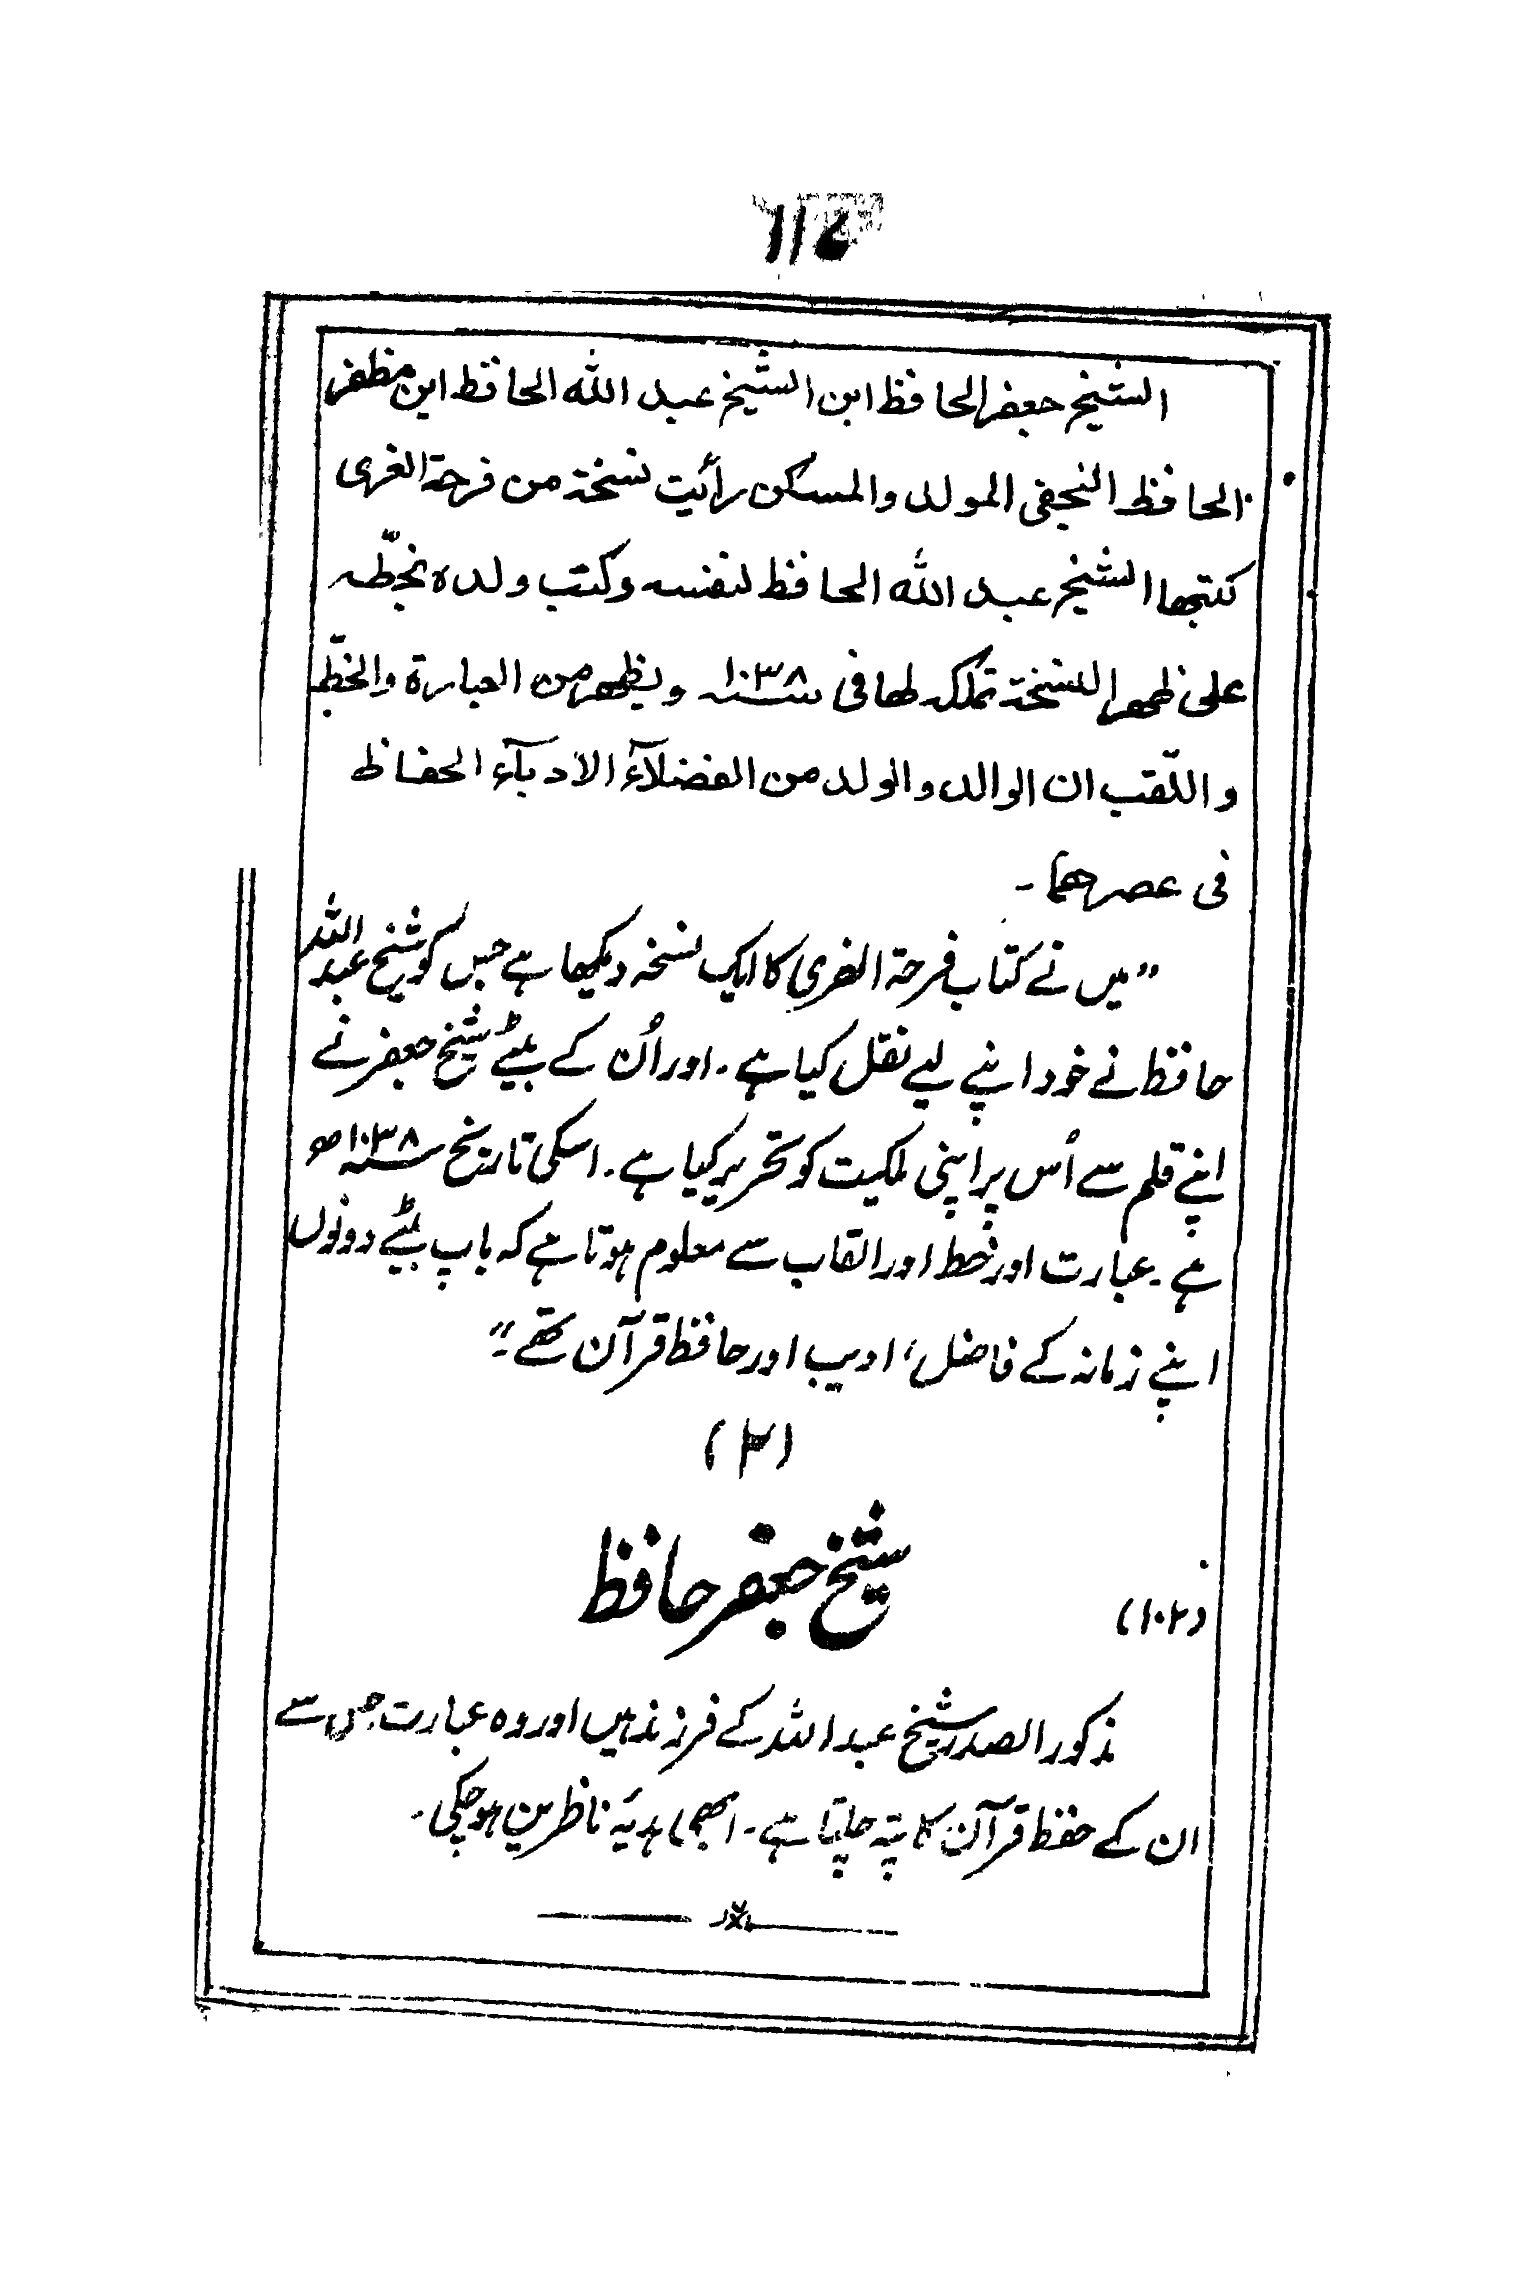 ۱۱۷
الشیخ جعفر الحافظ ابن الشیخ عبد اللہ الحافظ ابن مظفر
الحافظ النجفی المولد والمسکن رأیت نسخۃ من فرحۃ الغری
کتبھا الشیخ عبد اللہ الحافظ لنفسہ وکتب ولدہ بخطّہ
علی ظھر النسخۃ تملکہ لھا فی سنہ ۱۰۳۸ ویظھر من العبارۃ والخطّ
واللّقب ان الوالد والولد من الفضلآء الادبآء الحفاظ
فی عصرھما -
”میں نے کتاب فرحۃ الغری کا ایک نسخہ دیکھا ہے جس کو شیخ عبد اللہ
حافظ نے خود اپنے لیے نقل کیا ہے ۔ اور اُن کے بیٹے شیخ جعفر نے
اپنے قلم سے اُس پر اپنی ملکیت کو تحریر کیا ہے ۔ اسکی تاریخ سنہ ۱۰۳۸ ھ
ہے ۔ عبارت اور خط اور القاب سے معلوم ہوتا ہے کہ باپ بیٹے دونوں
اپنے زمانہ کے فاضل، ادیب اور حافظ قرآن تھے ۔“
(۳)
شیخ جعفر حافظ
(۱۰۲)
مذکور الصدر شیخ عبد اللہ کے فرزند ہیں اور وہ عبارت جس سے
ان کے حفظ قرآن کا پتہ چلتا ہے ۔ ابھی ہدیۂ ناظرین ہو چکی ۔